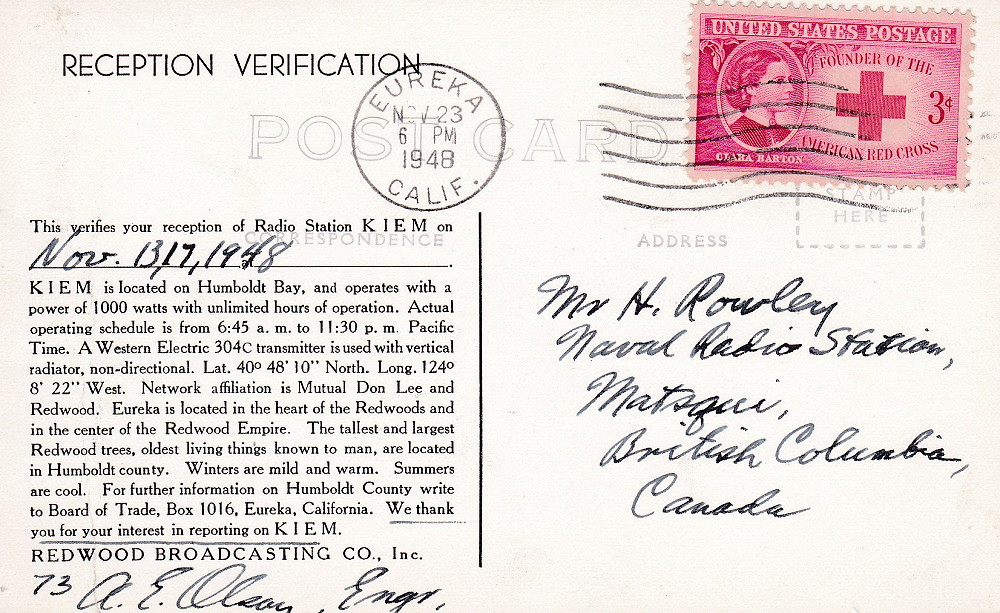 RECEPTION VERIFICATION
EUREKA
NOV 23
6 PM
1948
CALIF.
UNITED STATES POSTAGE
FOUNDER OF THE
3¢
AMERICAN RED CROSS
CLARA BARTON
POST CARD
STAMP
HERE
CORRESPONDENCE
ADDRESS
This verifies your reception of Radio Station KIEM on
Nov. 13,17,1948.
KIEM is located on Humboldt Bay, and operates with a
power of 1000 watts with unlimited hours of operation. Actual
operating schedule is from 6:45 a. m. to 11:30 p. m. Pacific
Time. A Western Electric 304C transmitter is used with vertical
radiator, non-directional. Lat. 40º 48' 10" North. Long. 124º
8' 22" West. Network affiliation is Mutual Don Lee and
Redwood. Eureka is located in the heart of the Redwoods and
in the center of the Redwood Empire. The tallest and largest
Redwood trees, oldest living things known to man, are located
in Humboldt county. Winters are mild and warm. Summers
are cool. For further information on Humboldt County write
to Board of Trade, Box 1016, Eureka, California. We thank
you for your interest in reporting on KIEM.
REDWOOD BROADCASTING CO., Inc.
73 A. E. Olson, Engr.
Mr H. Rowley
Naval Radio Station,
Matsqui,
British Columbia,
Canada